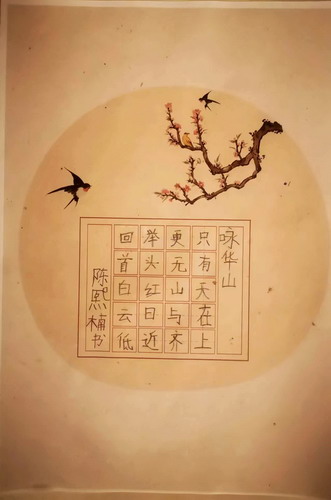 咏华山
只有天在上
更无山与齐
举头红日近
回首白云低
陈熙楠书